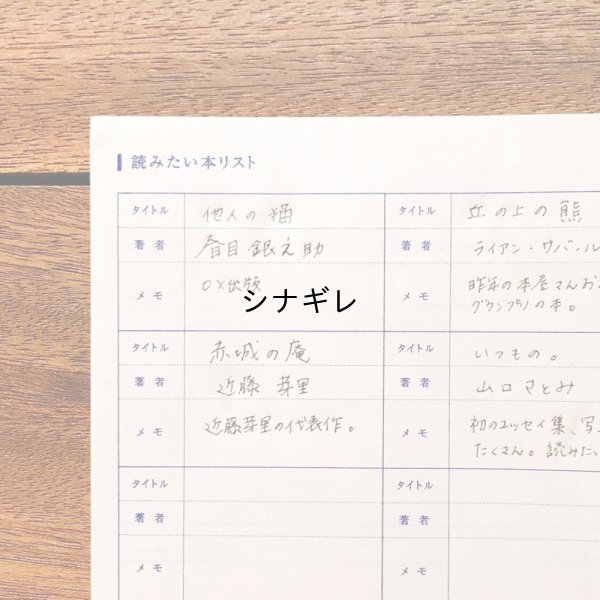 読みたい本リスト
タイトル 他人の猫
著者 春目 銀之助
メモ ○×出版
シナギレ
タイトル 赤城の庵
著者 近藤 芽里
メモ 近藤芽里の代表作。
タイトル
著者
メモ
タイトル 丘の上の熊
著者 ライアン・ワバール
メモ 昨年の本屋さんお
グランプリの本。
タイトル いつもの。
著者 山口さとみ
メモ 初のエッセイ集、写
たくさん。読みたい
タイトル
著者
メモ